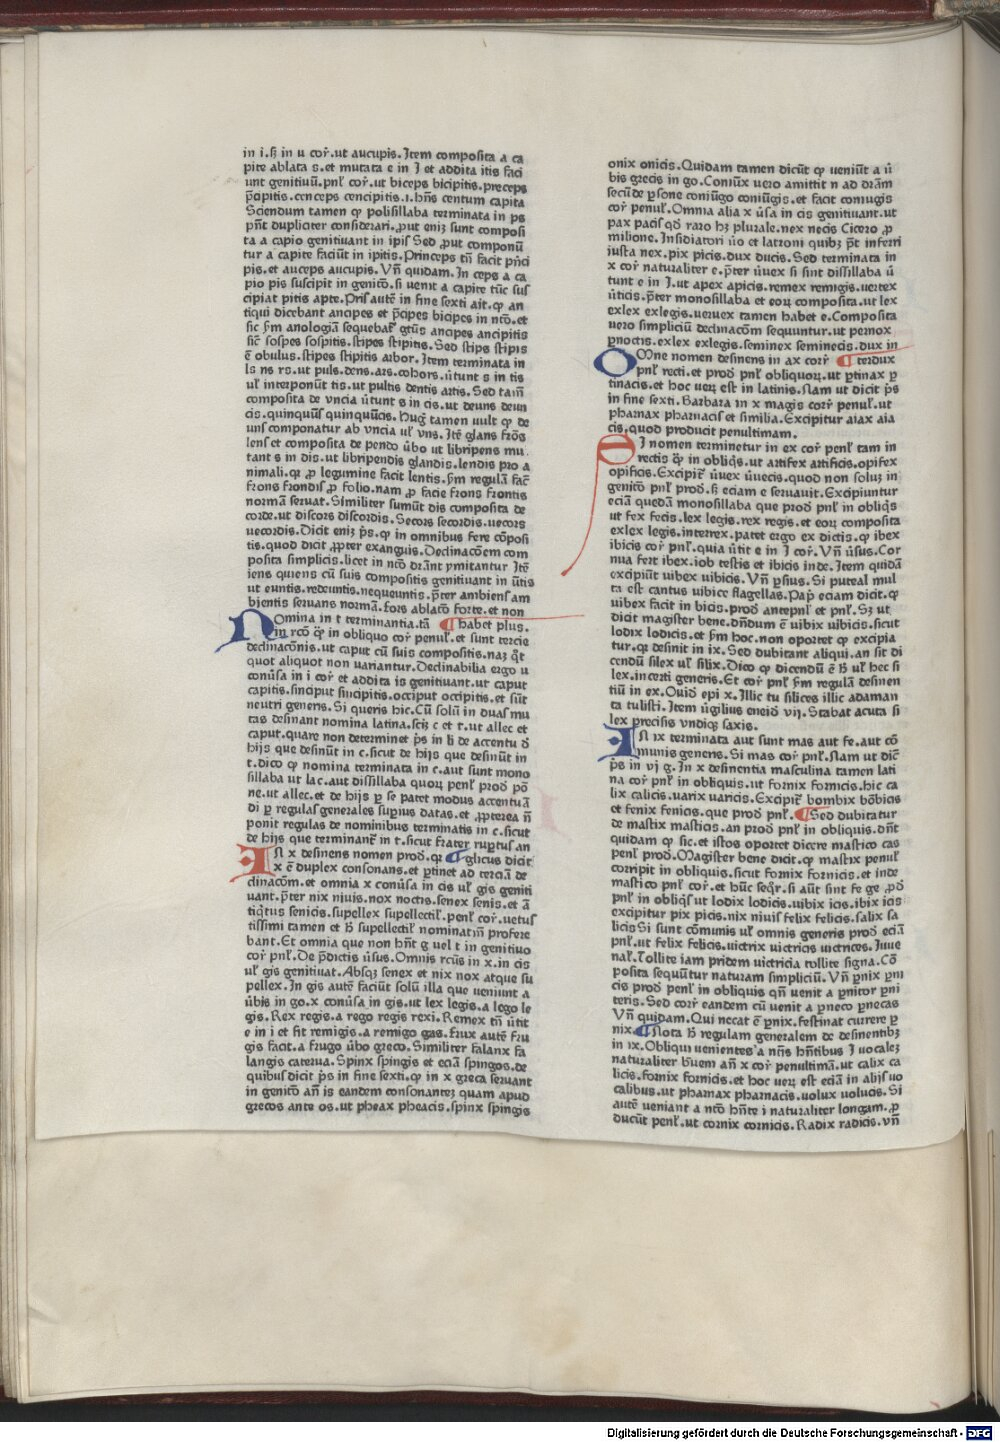 in i.sꝫ in u cor̄.ut aucupis.Item composita a ca
pite ablata s.et mutata e in I et addita itis faci
unt genitiuū.pnl̄ cor̄.ut biceps bicipitis.preceps
p̄cipitis.cenceps cencipitis.i.hn̄s centum capita
Sciendum tamen ꝙ polisillaba terminata in ps
pn̄t dupliciter considerari.ꝓut eniꝫ sunt composi
ta a capio genitiuant in ipis Sed ꝓut componū
tur a capite faciūt in ipitis.Princeps tn̄ facit pn̄ci
pis.et auceps aucupis.Vn̄ quidam.In ceps a ca
pio pis suscipit in genitō.si uenit a capite tūc sus
cipiat pitis apte.Pris autē in fine sexti ait.ꝙ an
tiqui dicebant ancipes et p̄cipes bicipes in nt̄o.et
sic s̄m anologiā sequebat᷑ gt̄us ancipes ancipitis
sic̄ sospes sospitis.stipes stipitis.Sed stips stipis
ē obulus.stipes stipitis arbor.Item terminata in
ls ns rs.ut puls.dens.ars.cohors.ūtunt s in tis
ul̄ interponūt tis.ut pultis dentis artis.Sed tam̄
composita de vncia ūtunt s in cis.ut deuns deun
cis.quinquūs quinquūcis.Huḡ tamen uult ꝙ de
uns componatur ab vncia ul̄ vns.Itē glans frōs
lens et composita de pendo ūbo ut libripens mu
tant s in dis.ut libripendis glandis.lendis pro a
nimali.qꝛ ꝓ legumine facit lentis.s̄m regulā fac̄
frons frondis ꝓ folio.nam ꝓ facie frons frontis
normā seruat.Similiter sumūt dis composita de
corde.ut discors discordis.Secors secordis.uecors
uecordis.Dicit eniꝫ ps̄.ꝙ in omnibus fere cōposi
tis.quod dicit ꝓpter exanguis.Declinacōem com
posita simplicis.licet in nt̄o drānt ꝑmitantur Itē
iens quiens cū suis compositis genitiuant in ūtis
ut euntis.redeuntis.nequeuntis.pter ambiens am
bientis seruans normā.fors ablatō forte.et non
Nomina in t terminantia.tā ¶ habet plus.
in rcō ꝙ in obliquo cor̄ penul̄.et sunt tercie
declinacōnis.ut caput cū suis compositis.naꝫ qt̄
quot aliquot non variantur.Declinabilia ergo u
conūsa in i cor̄ et addita is genitiuant.ut caput
capitis.sinciput sincipitis.occiput occipitis.et sūt
neutri generis.Si queris hic.Cū solū in duas mu
tas desinant nomina latina.sciꝫ c et t.ut allec et
caput.quare non determinet ps̄ in li de accentu d̄
hijs que desinūt in c.sicut de hijs que desinūt in
t.dico ꝙ nomina terminata in c.aut sunt mono
sillaba ut lac.aut dissillaba quoꝝ penl̄ prod̄ pō
ne.ut allec.et de hijs ꝑ se patet modus accentuā
di ꝑ regulas generales suꝑius datas.et ꝓpterea n̄
ponit regulas de nominibus terminatis in c.sicut
de hijs que terminant᷑ in t.sicut frater ruptus an
In x desinens nomen prod̄.qꝛ ¶ glicus dicit
x ē duplex consonans.et ꝑtinet ad terciā de
clinacōm.et omnia x conūsa in cis ul̄ gis geniti
uant.pter nix niuis.nox noctis.senex senis.et ā
tiq̄tus senicis.supellex supellectil̄.penl̄ cor̄.uetus
tissimi tamen et h̄ supellectil̄ nominatim̄ profere
bant.Et omnia que non hn̄t g uel t in genitiuo
cor̄ pnl̄.De p̄dictis ūsus.Omnis rcūs in x.in cis
ul̄ gis genitiuat.Absqꝫ senex et nix nox atque su
pellex.In gis autē faciūt solū illa que ueniunt a
ūbis in go.x conūsa in gis.ut lex legis.a lego le
gis.Rex regis.a rego regis rexi.Remex tn̄ ūtit
e in i et fit remigis.a remigo gas.frux autē fru
gis facit.a frugo ūbo greco.Similiter falanx fa
langis caterua.Spinx spingis et eciā spingos.de
quibus dicit ps̄ in fine sexti.ꝙ in x greca seruant
in genitō an̄ is eandem consonanteꝫ quam apud
grecos ante os.ut pheax pheacis.spinx spingis
onix onicis.Quidam tamen dicūt ꝙ veniūt a ū
bis grecis in go.Coniūx uero amittit n ad drām
secūde ꝑsone coniūgo coniūgis.et facit coniugis
cor̄ penul̄.Omnia alia x ūsa in cis genitiuant.ut
pax pacis qd̄ raro hꝫ plurale.nex necis Cicero ꝓ
milione.Insidiatori ūo et latroni quibꝫ pt̄ inferri
iusta nex.pix picis.dux ducis.Sed terminata in
x cor̄ naturaliter e.pter ūuex si sint dissillaba ū
tunt e in I.ut apex apicis.remex remigis.uertex
ūticis.pter monosillaba et eoꝝ composita.ut lex
exlex exlegis.ueruex tamen habet e.Composita
uero simpliciū declinacōm sequuntur.ut pernox
pnoctis.exlex exlegis.seminex seminecis.dux in
Omne nomen desinens in ax cor̄r ¶ terdux
pnl̄ recti.et prod̄ pnl̄ obliquoꝝ.ut ꝑtinax ꝑ
tinacis.et hoc ueꝝ est in latinis.Nam ut dicit ps̄
in fine sexti.Barbara in x magis cor̄r penul̄.ut
pharnax pharnacis et similia.Excipitur aiax aia
cis.quod producit penultimam.
SI nomen terminetur in ex cor̄ penl̄ tam in
rectis ꝙ in obliqs̄.ut artifex artificis.opifex
opificis.Excipit᷑ ūuex ūuecis.quod non soluꝫ in
genitō pnl̄ prod̄.sꝫ eciam e seruauit.Excipiuntur
eciā quedā monosillaba que prod̄ pnl̄ in obliqs̄
ut fex fecis.lex legis.rex regis.et eoꝝ composita
exlex legis.interrex.patet ergo ex dictis.ꝙ ibex
ibicis cor̄ pnl̄.quia ūtit e in I cor̄.Vn̄ ūsus.Cor
nua fert ibex.iob testis et ibicis inde.Item quidā
excipiūt uibex uibicis.Vn̄ ꝑsius.Si puteal mul
ta est cantus uibice flagellas.Pap̄ eciam dicit.ꝙ
uibex facit in bicis.prod̄ antepnl̄ et pnl̄.Sꝫ ut
dicit magister bene.dn̄dum ē uibix uibicis.sicut
lodix lodicis.et s̄m hoc.non oportet ꝙ excipia
tur.qꝛ desinit in ix.Sed dubitant aliqui.an sit di
cendū silex ul̄ silix.Dico ꝙ dicendū ē h̄ ul̄ hec si
lex.incerti generis.Et cor̄ pnl̄ s̄m regulā desinen
tiū in ex.Ouid̄ epi x.Illic tu silices illic adaman
ta tulisti.Item ūgilius eneid̄ vij.Stabat acuta si
lex precisis vndiqꝫ saxis.
IN ix terminata aut sunt mas aut fe.aut cō
munis generis.Si mas cor̄ pnl̄.Nam ut dic̄
ps̄ in vj g.In x desinentia masculina tamen lati
na cor̄ pnl̄ in obliquis.ut fornix fornicis.hic ca
lix calicis.uarix uaricis.Excipit᷑ bombix bōbicis
et fenix fenicis.que prod̄ pnl̄.¶ Sed dubitatur
de mastix masticis.an prod̄ pnl̄ in obliquis.dn̄t
quidam ꝙ sic.et istos oportet dicere mastico cas
penl̄ prod̄.Magister bene dicit.ꝙ mastix penul̄
corripit in obliquis.sicut fornix fornicis.et inde
mastico pnl̄ cor̄.et hūc seqr̄.si aūt sint fe ge ꝓd̄
pnl̄ in obliqs̄ ut lodix lodicis.uibix icis.ibix icis
excipitur pix picis.nix niuis felix felicis.salix sa
licis Si sunt cōmunis ul̄ omnis generis prod̄ eciā
pnl̄.ut felix felicis.uictrix uictricis uictrices.Iuue
nal̄.Tollite iam pridem uictricia tollite signa.Cō
posita sequūtur naturam simpliciū.Vn̄ ꝑnix ꝑni
cis prod̄ penl̄ in obliquis qn̄ uenit a ꝑnitor ꝑni
teris.Sed cor̄r eandem cū uenit a ꝑneco ꝑnecas
Vn̄ quidam.Qui necat ē ꝑnix.festinat currere ꝑ
nix.¶ Nota h̄ regulam generalem de desinentibꝫ
in ix.Obliqui uenientes a nn̄s hn̄tibus I uocaleꝫ
naturaliter bŕuem an̄ x cor̄ penultimā.ut calix ca
licis.fornix fornicis.et hoc ueꝝ est eciā in alijs uo
calibus.ut pharnax pharnacis.uolux uolucis.Si
autē ueniant a ntō hn̄te i naturaliter longam.ꝓ
ducūt penl̄.ut cornix cornicis.Radix radicis.vn̄
Digitalisierung gefördert durch die Deutsche Forschungsgemeinschaft - DFG